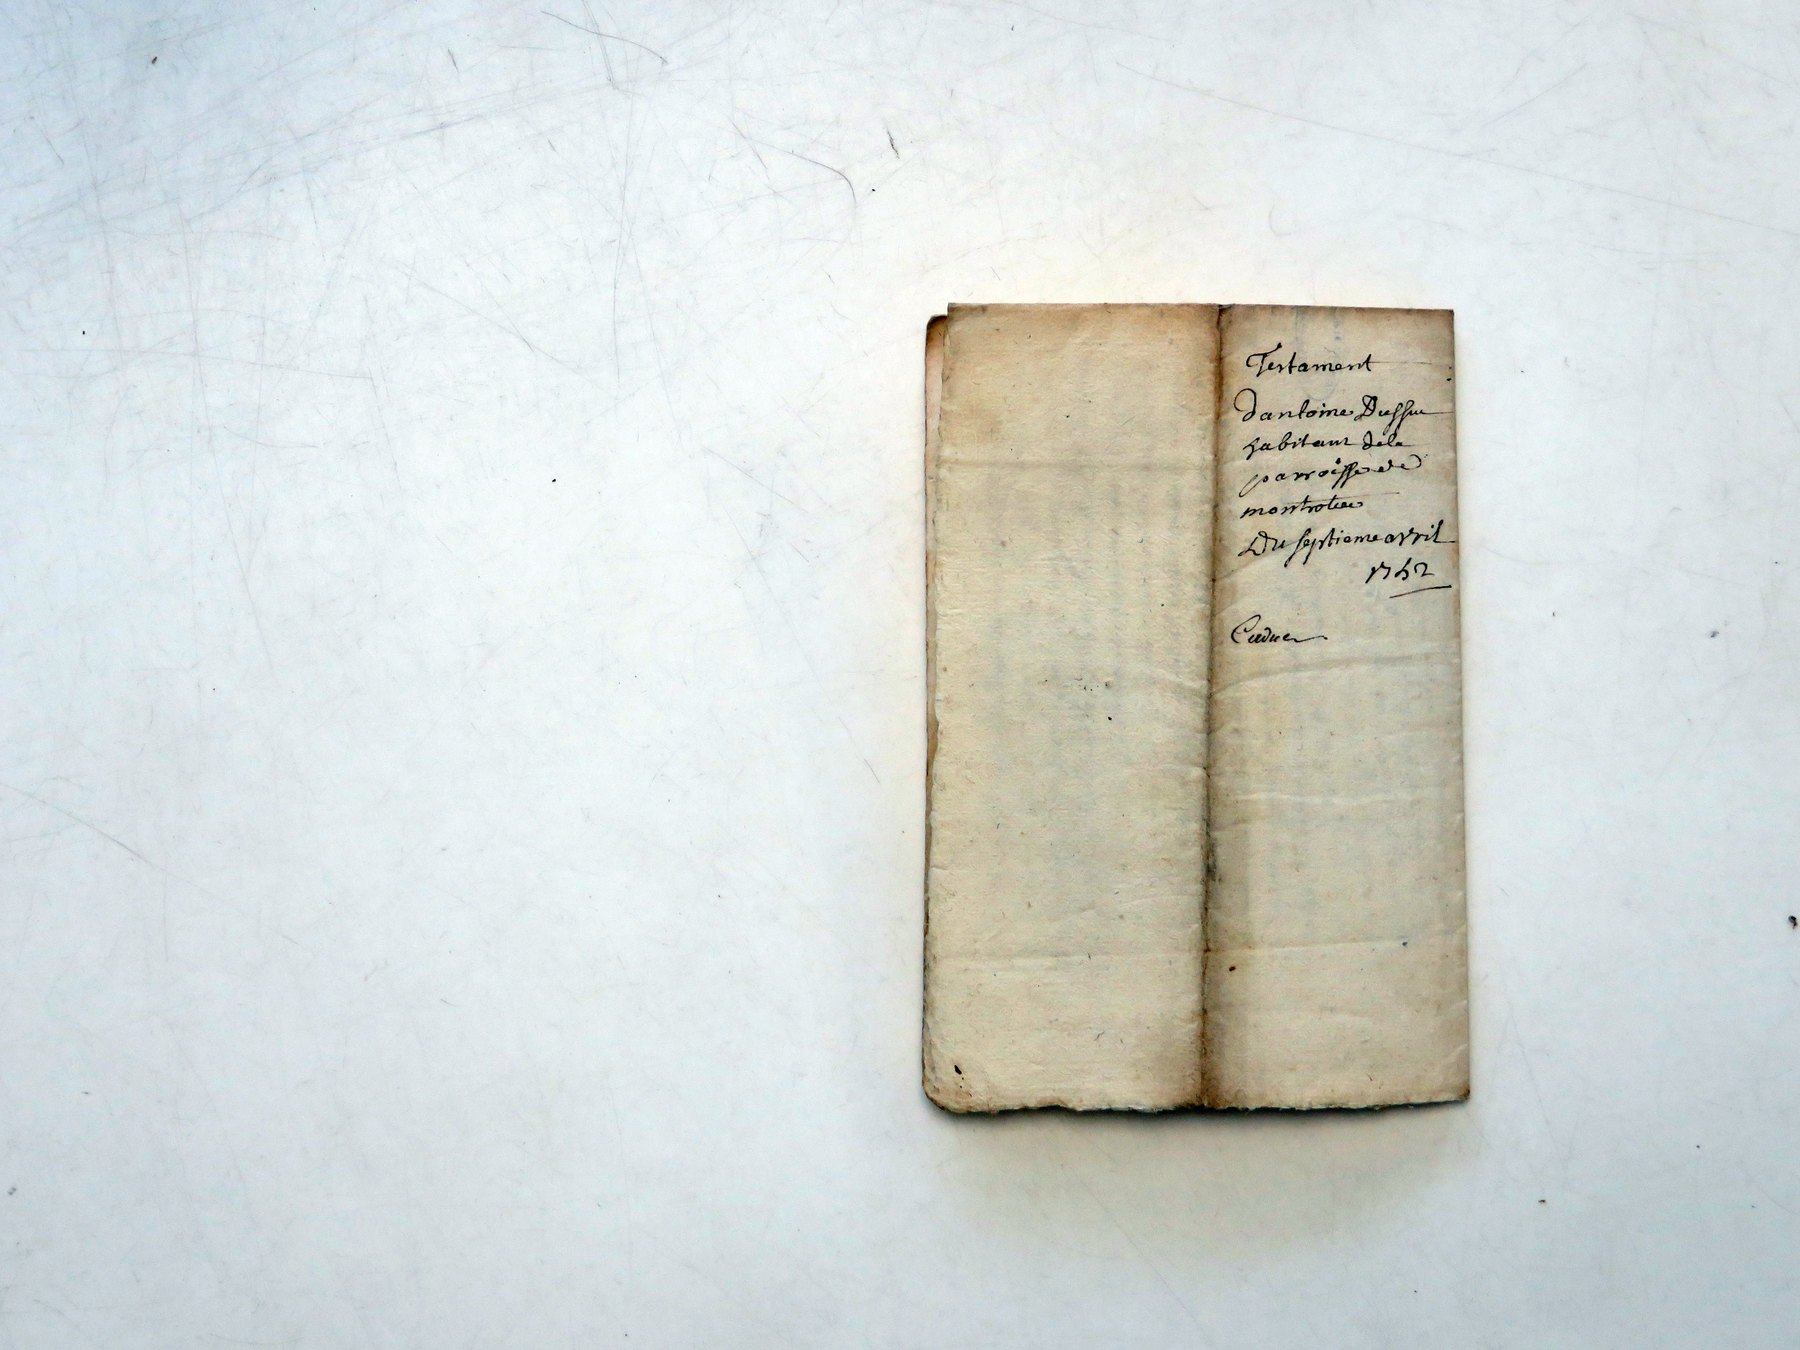 Testament
dantoine Dussu
habitant dela
parroisse de
montrotier
Du septieme avril
1742
Caduc